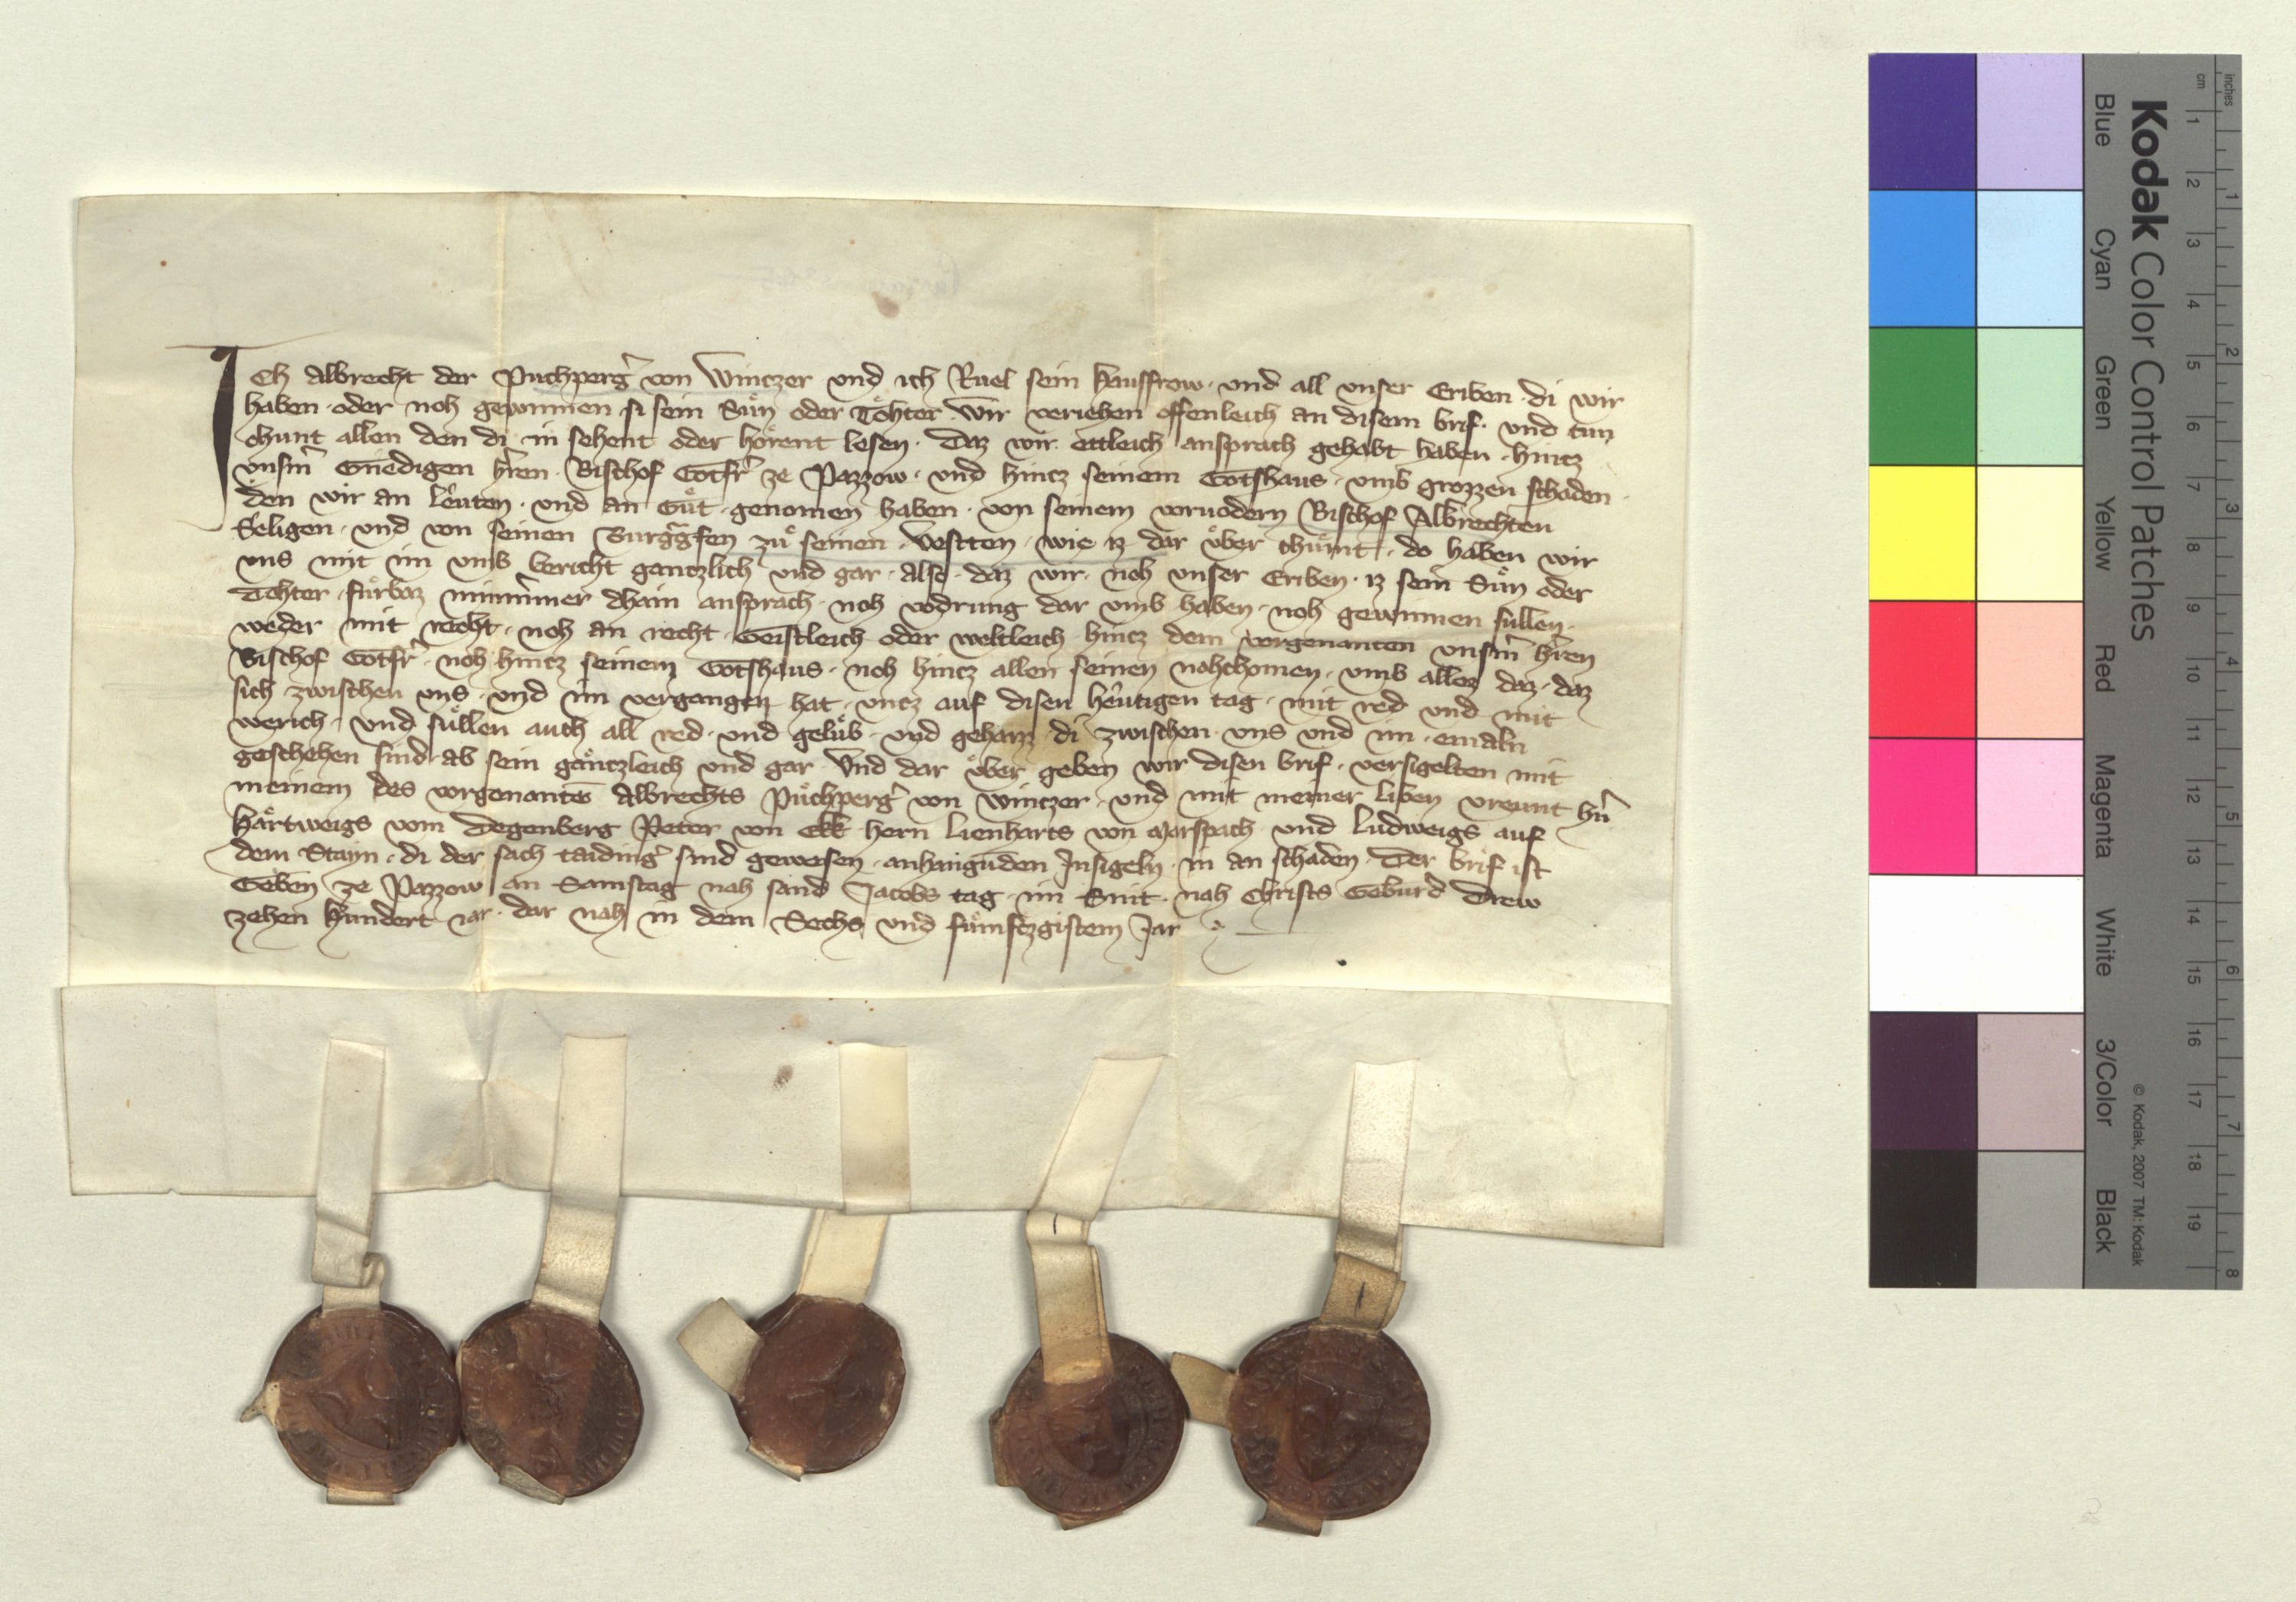 Ich Albrecht der Puchperg̃ von Winczer vnd ich Ruel sein Hausfrow · vnd all vnser Eriben · di wir
haben · oder noh gewinnen si sein Suͤn oder Toͤhter · Wir veriehen offenleich an disem brif · vnd tun
chunt allen den di in sehent oder hoͤrent lesen · Daz wir ettleich ansprach gehabt haben · hincz
vnsm̃ Gnedigen hr̃en · Bischof Gotfr̃ ze Pazzow · vnd hincz seinem Gotshaus · vmb grozzen schaden ·
den wir an leuten · vnd an Guͤt · genomen haben · von seinem voruodern Bischof Albrechten
Seligen · vnd von seinen Burgg̃fen zuͤ seinen · Vestten · wie iz dar uͤber chuͤmt · do haben wir
vns mit im vmb bericht gantzlich vnd gar · Also · daz wir · noh vnser Eriben · iz sein Suͤn oder
Tohter · fuͤrbaz nimmer dhain ansprach · noh vodrung dar vmb haben · noh gewinnen suͤllen ·
weder mit recht · noh an recht · Geistleich oder weltleich · hincz dem vorgenanten vnsm̃ hr̃en
Bischof Gotfr̃ · noh hincz seinem Gotshaus · noh hincz allen seinen nohchomen · vmb allez daz · daz
sich zwischen vns · vnd im vergangen hat · vncz auf disen heutigen tag · mit red vnd mit
werich · vnd suͤllen auch all red · vnd geluͤb · vnd gehaizz di zwischen · vns vnd im · emaln
geschehen sind · ab sein gaͤnczleich vnd gar · Vnd dar uͤber geben wir disen brif · versigelten mit
meinem des vorgenantē Albrechts Puͤchperg̃ von Winczer · vnd mit meiner liben vreunt hñ
Haͤrtweigs vom Degenberg Peter von Ekk hern Lienharts von Marspach vnd Ludweigs auf
dem Stain · di der sach taiding̃ sind gewesen · anhangunden Insigeln · in an schaden · Der brif ist
Geben ze Pazzow an Samstag nah sand Jacobs tag · im Snit · nah Christs Geburd Drew
zehen Hundert iar · dar nah in dem Sechs vnd fuͤmfczgistem Jar
Kodak Color Control Patches
Blue Cyan Green Yellow Red Magenta White 3/Color Black
inches 1 2 3 4 5 6 7 8
cm 1 2 3 4 5 6 7 8 9 10 11 12 13 14 15 16 17 18 19
© Kodak, 2007 TM: Kodak